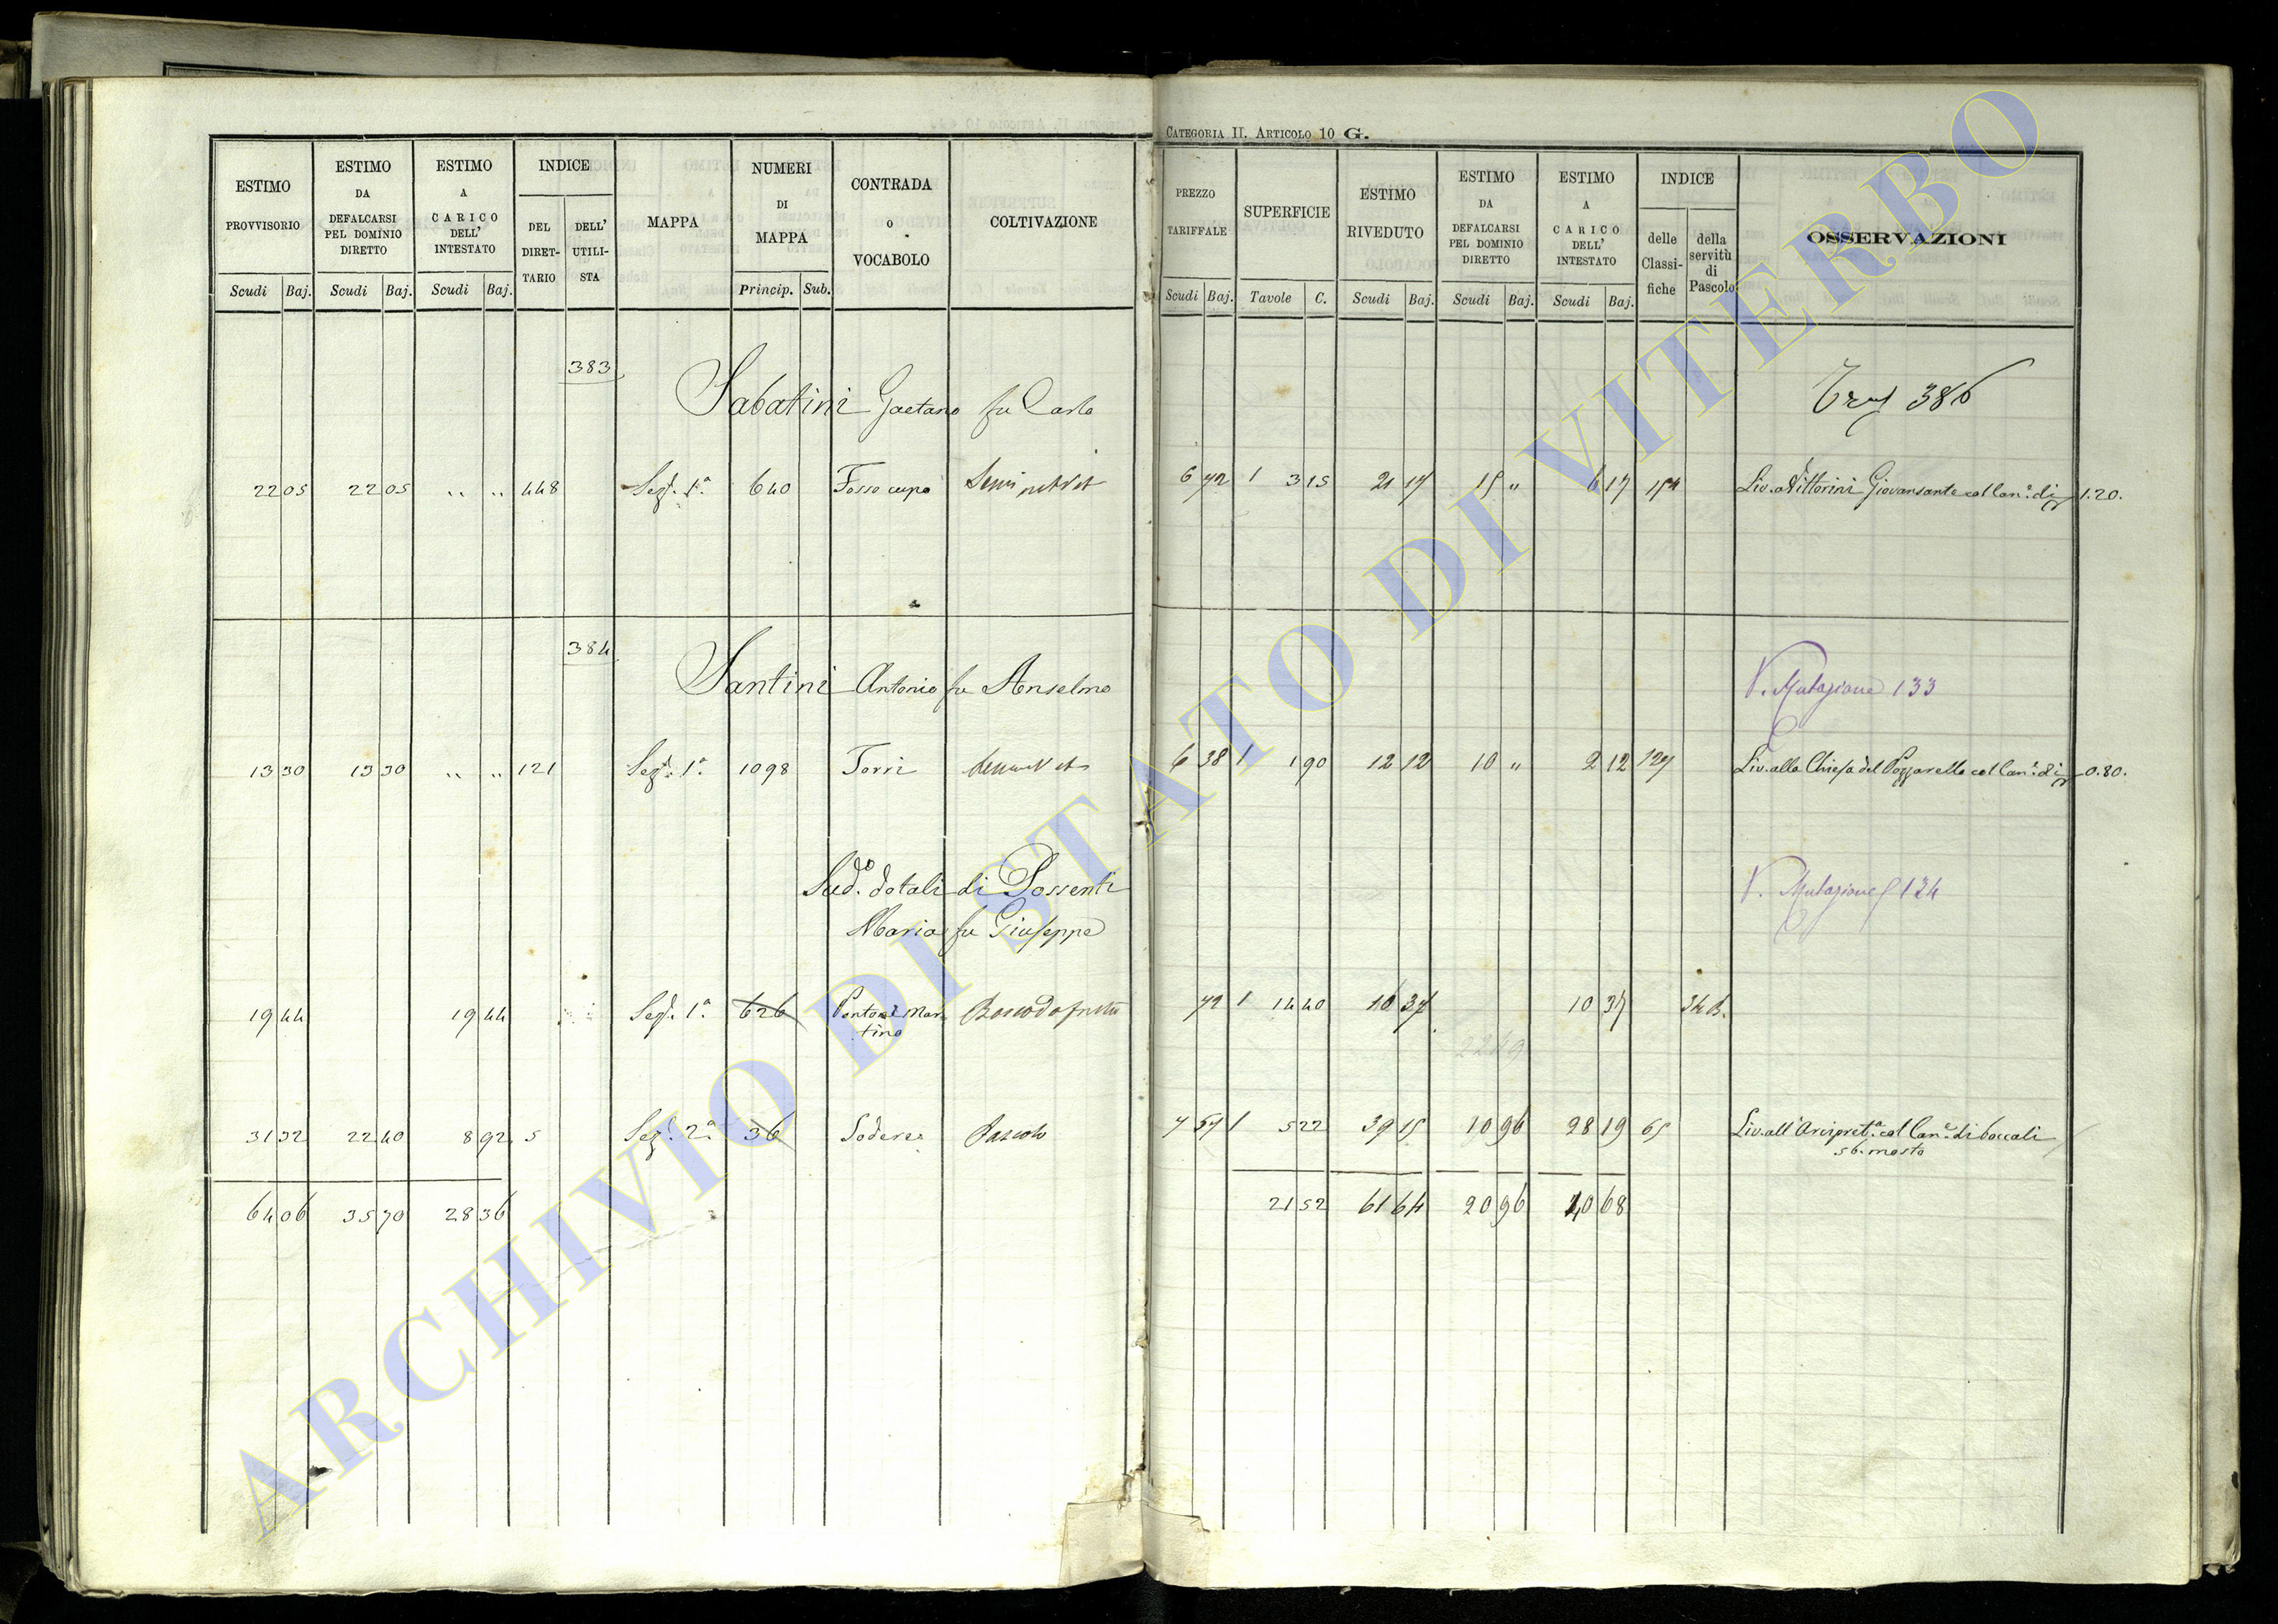 CATEGORIA II. ARTICOLO 10 G.
ESTIMO PROVVISORIO
ESTIMO DA DEFALCARSI PEL DOMINIO DIRETTO
ESTIMO A CARICO DELL' INTESTATO
INDICE
DEL DIRET-TARIO
DELL' UTILI-STA
MAPPA
NUMERI DI MAPPA
CONTRADA o VOCABOLO
COLTIVAZIONE
Scudi Baj. Scudi Baj. Scudi Baj. Princip. Sub.
PREZZO TARIFFALE
SUPERFICIE
ESTIMO RIVEDUTO
ESTIMO DA DEFALCARSI PEL DOMINIO DIRETTO
ESTIMO A CARICO DELL' INTESTATO
INDICE
delle Classi-fiche
della servitù di Pascolo
OSSERVAZIONI
Scudi Baj. Tavole C. Scudi Baj. Scudi Baj. Scudi Baj.
383
Sabatini Gaetano fu Carlo
386
22 05 22 05 " " 448 Sez. 1ª 640 Fosso cupo
6 72 1 3 15 21 17 15 " 6 17 154 Liv. a Vittorini Giovansante col Can.e di 1.20.
384
Santini Antonio fu Anselmo
V. Mutazione 133
13 30 13 30 " " 121 Sez. 1ª 1098 Torri
6 38 1 1 90 12 12 10 " 2 12 127 Liv. alla Chiesa del Pozzarello col Can.e di 0.80.
Sud.o dotali di Possenti
Maria fu Giuseppe
V. Mutazione 134
19 44 19 44 Sez. 1ª 626 Ponte Mar
tino
72 1 14 40 10 37 10 37 34 B.
31 32 22 40 8 92 5 Sez. 2ª 36 Pascolo
7 57 1 5 22 39 15 10 96 28 19 65 Liv. all'Arcipret.a col Can.e di boccali
56. mosto
64 06 35 70 28 36
21 52 61 64 20 96 40 68
ARCHIVIO DI STATO DI VITERBO